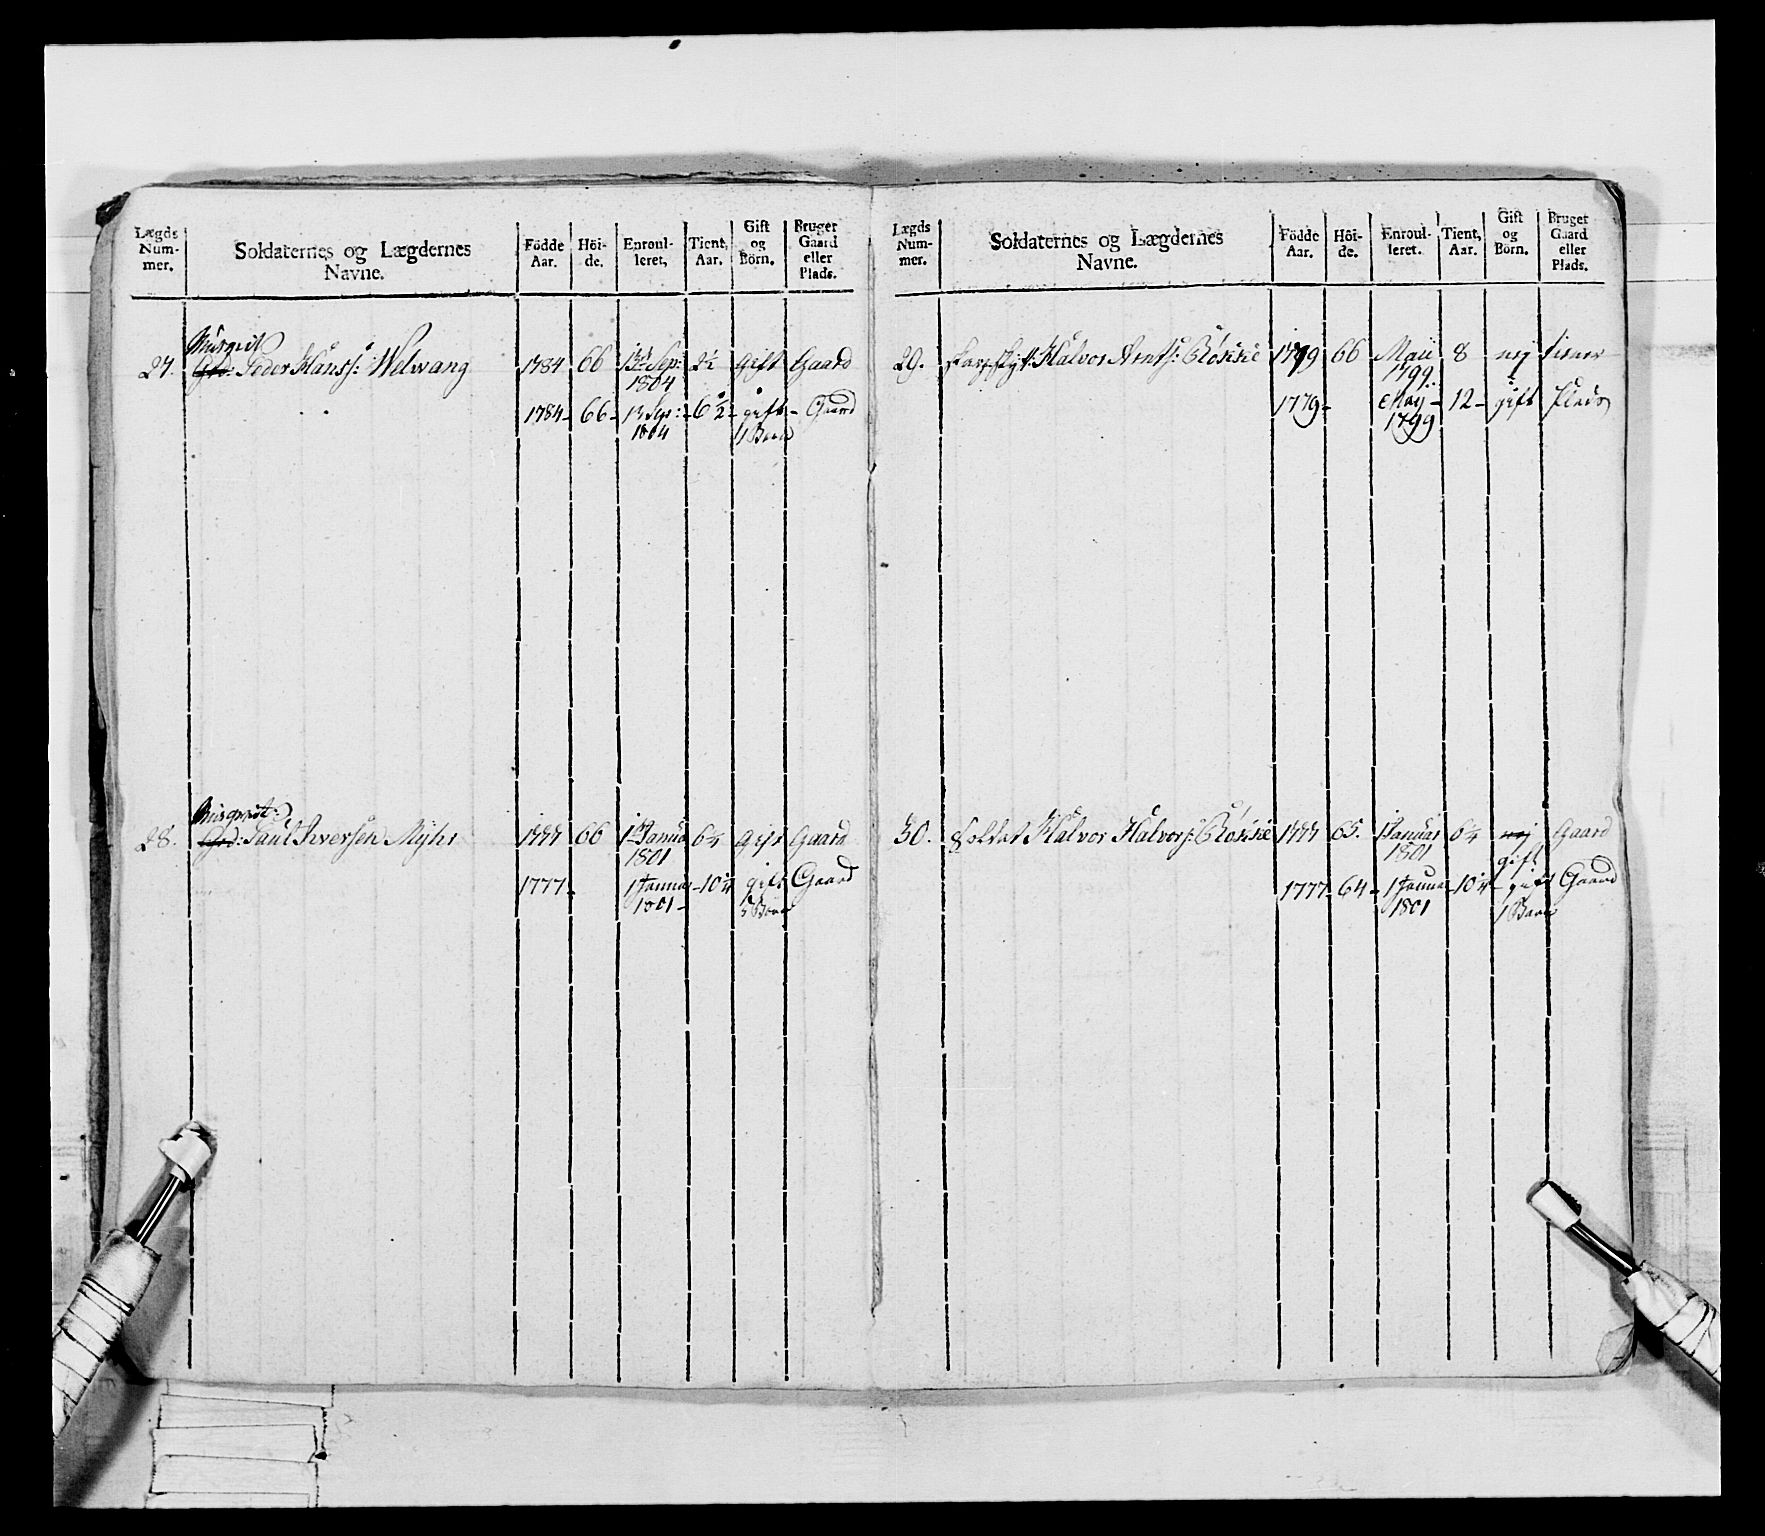 Lægds Num- mer. | Soldaternes og Lægdernes Navne. | Födde Aar. | Höi- de. | Enroul- leret, | Tient, Aar. | Gift og Börn. | Bruger Gaard eller Plads.
Musquet
27. Peder Hanss: Welwang 1784 66 13de Sep: 1804 2½ gift Gaard
1784 - 66 - 13 Sep: 1804 - 6½ - gift 1 Barn - Gaard
Musquet:
28. Gred: Paul Iversen Myhr 1777 66 1 Januar 1801 6¼ gift Gaard
1777 - 1 Januar 1801 - 10¼ gift 5 Börn Gaard
Lægds Num- mer. | Soldaternes og Lægdernes Navne. | Födde Aar. | Höi- de. | Enroul- leret. | Tient, Aar. | Gift og Börn. | Bruget Gaard eller Plads.
29. Skarpskyt: Halvor Arnts: Röskie 1779 66 Maii 1799. 8 nej tiener
1779 - May 1799 - 12 - gift Plads
30. Soldat Halvor Halvors: Röskie 1777 65. 1 Januar 1801 6¼ nej gift Gaard
1777 - 64 - 1 Januar 1801 - 10¼ - gift 1 Barn Gaard